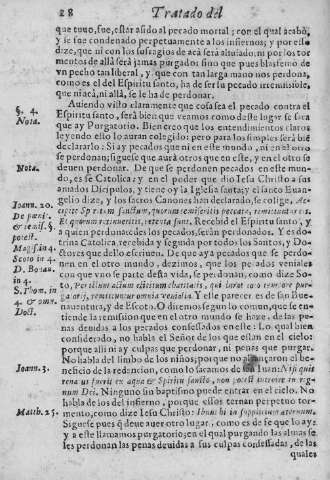 28 Tratado del
que tuuo, fue, estar asido al pecado mortal; con el qual acabó,
y se fue condenado perpetuamente a los infiernos; y por esto
dize, que ni con los sufragios de acá será aluiado, ni por los tor
mentos de allá será jamas purgado: sino que pues blasfemò de
vn pecho tan liberal, y que con tan larga mano nos perdona,
como es el del Espiritu santo, ha de ser su pecado irremisible,
que ni acá, ni allá, se le ha de perdonar.
§. 4.
Nota.
Auiendo visto claramente que cosa sea el pecado contra el
Espiritu santo, será bien que veamos como deste lugar se saca
que ay Purgatorio. Bien creo que los entendimientos claros
leyendo esto lo auran colegido: pero para los simples será bié
declararlo: Si ay pecados que ni en este mundo, ni en el otro
se perdonan; siguese que aurá otros que en este, y en el otro se
Nota.
deuen perdonar. De que se perdonen pecados en este mun-
do, es Fe Catolica: ay en el poder que dio Iesu Christo a sus
amados Dicipulos, y tiene oy la Iglesia santa; y el santo Euan-
Ioann. 20.
gelio dize, y los sacros Canones han declarado, se colige, Ac-
cipite Spiritum sanctum, quorum remiseritis peccata, remittuntur eis.
Et quorum retinueritis, retenta sunt. Recebid el Espiritu santo, y
a quien perdonaredes los pecados, seràn perdonados. Y es doc
trina Catolica recebida y seguida por todos los Santos, y Do-
Magist. in 4.
Scoto in 4.
ctores que dello escriuen. De que aya pecados que se perdo-
nen en el otro mundo, dezimos, que los pecados veniales
in 4.
S. Thom. in
4. & omn.
Doct.
con que vno se parte desta vida, se perdonan, como dize So-
to,
Y este parecer es de san Bue-
nauentura, y de Escoto. O diremos segun lo comun, que se en-
tiende la remission que en el otro mundo se haze, de las pe-
nas deuidas a los pecados confessados en este: Lo qual bien
considerado, no habla el Señor de los que estan en el cielo:
porque alli ni ay culpas que perdonar, ni penas que purgar.
No habla del limbo de los niños; porque no alcançaron el be-
Ioann. 3.
neficio de la redencion, como lo sacamos de san Iuan: Nisi quis
rena us fuerit ex aqua & Spiritu sancto, non potest introire in reg-
num Dei. Ninguno sin baptismo puede entrar en el cielo. No
habla de los del infierno, porque essos ternan perpetuo tor-
Matth. 25.
mento, como dize Iesu Christo: Ibunt hi in supplicium æternum.
Siguese pues q̃ deue auer otro lugar, como es de fe que lo ay:
y a este llamamos purgatorio; en el qual purgando las almas se
les perdonan las penas deuidas a sus culpas confessadas, de las
quales